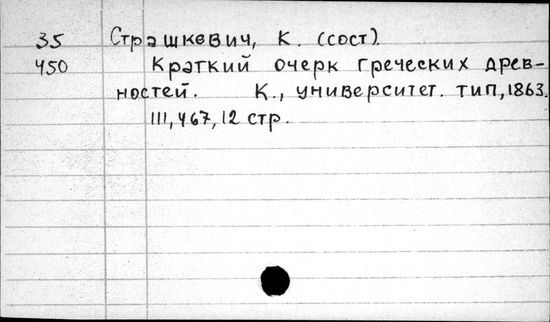 35 Страшкевич, К. (сост).
450 Краткий очерк греческих древ-
ностей. К., университет. тип, 1863.
III, 467, 12 стр.